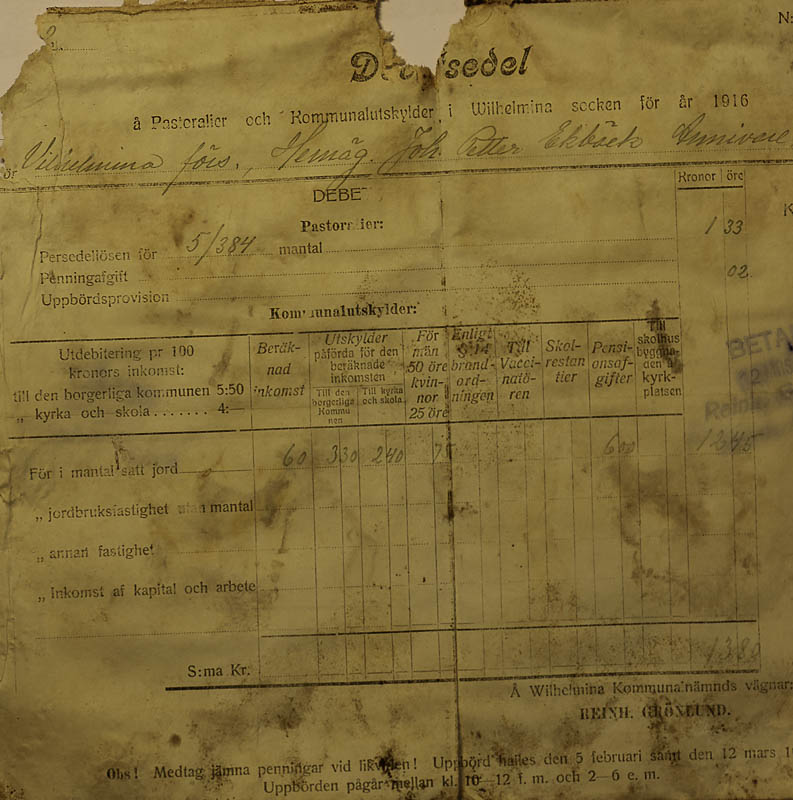 N:
sedel
å Pastoralier och Kommunalutskylder i Wilhelmina socken för år 1916
Vilhelmina förs., Hemäg. Joh. Petter Ekbäck
DEBE
Kronor öre
Pastor ier:
Persedellösen för 5/384 mantal 1 33
Penningafgift 02
Uppbördsprovision
Kommunalutskylder:
Utdebitering pr 100
kronors inkomst:
till den borgerliga kommunen 5:50
„ kyrka och skola....... 4:—
Beräk-
nad
inkomst
Utskylder
påförda för den
beräknade
inkomsten
Till den
borgerliga
Kommu
nen
Till kyrka
och skola
För
män
50 öre
kvin-
nor
25 öre
Enligt
§ 14
brand-
ord-
ningen
Till
Vacci-
natö-
ren
Skol-
restan
tier
Pensi-
onsaf-
gifter
Till
skolhus
byggna-
den å
kyrk-
platsen
BETA
För i mantal satt jord 60 330 240 75 600 12 45
„ jordbruksfastighet utan mantal
„ annan fastighet
„ Inkomst af kapital och arbete
S:ma Kr. 13 80
Å Wilhelmina Kommunalnämnds vägnar:
REINH. GRÖNLUND.
Obs! Medtag jämna penningar vid likviden! Uppbörd hålles den 5 februari samt den 12 mars
Uppbörden pågår mellan kl. 10—12 f. m. och 2—6 e. m.